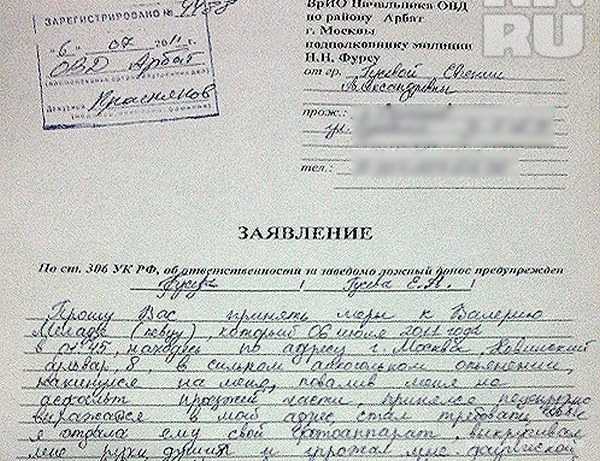 ЗАРЕГИСТРИРОВАНО №
"6" 07 2011 г.
ОВД Арбат
Дежурный Краснянов
ВрИО Начальника ОВД
по району Арбат
г. Москвы
подполковнику милиции
Н.Н. Фурсу
от гр. Гусевой Евгении
Александровны
прож.:
тел.:
RU
ЗАЯВЛЕНИЕ
По ст. 306 УК РФ, об ответственности за заведомо ложный донос предупрежден
Гусева / Гусева Е.А. /
Прошу Вас принять меры к Валерию
Меладзе (певцу), который 06 июля 2011 года
в 0:45, находясь по адресу г. Москва, Новинский
бульвар, 8, в сильном алкогольном опьянении,
накинулся на меня, повалив меня на
асфальт проезжей части, принялся нецензурно
выражаться в мой адрес, стал требовать, чтобы
я отдала ему свой фотоаппарат, выкручивал
мне руки, душил и угрожал мне физической